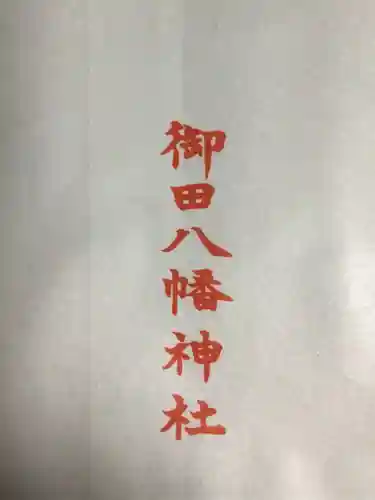 御田八幡神社